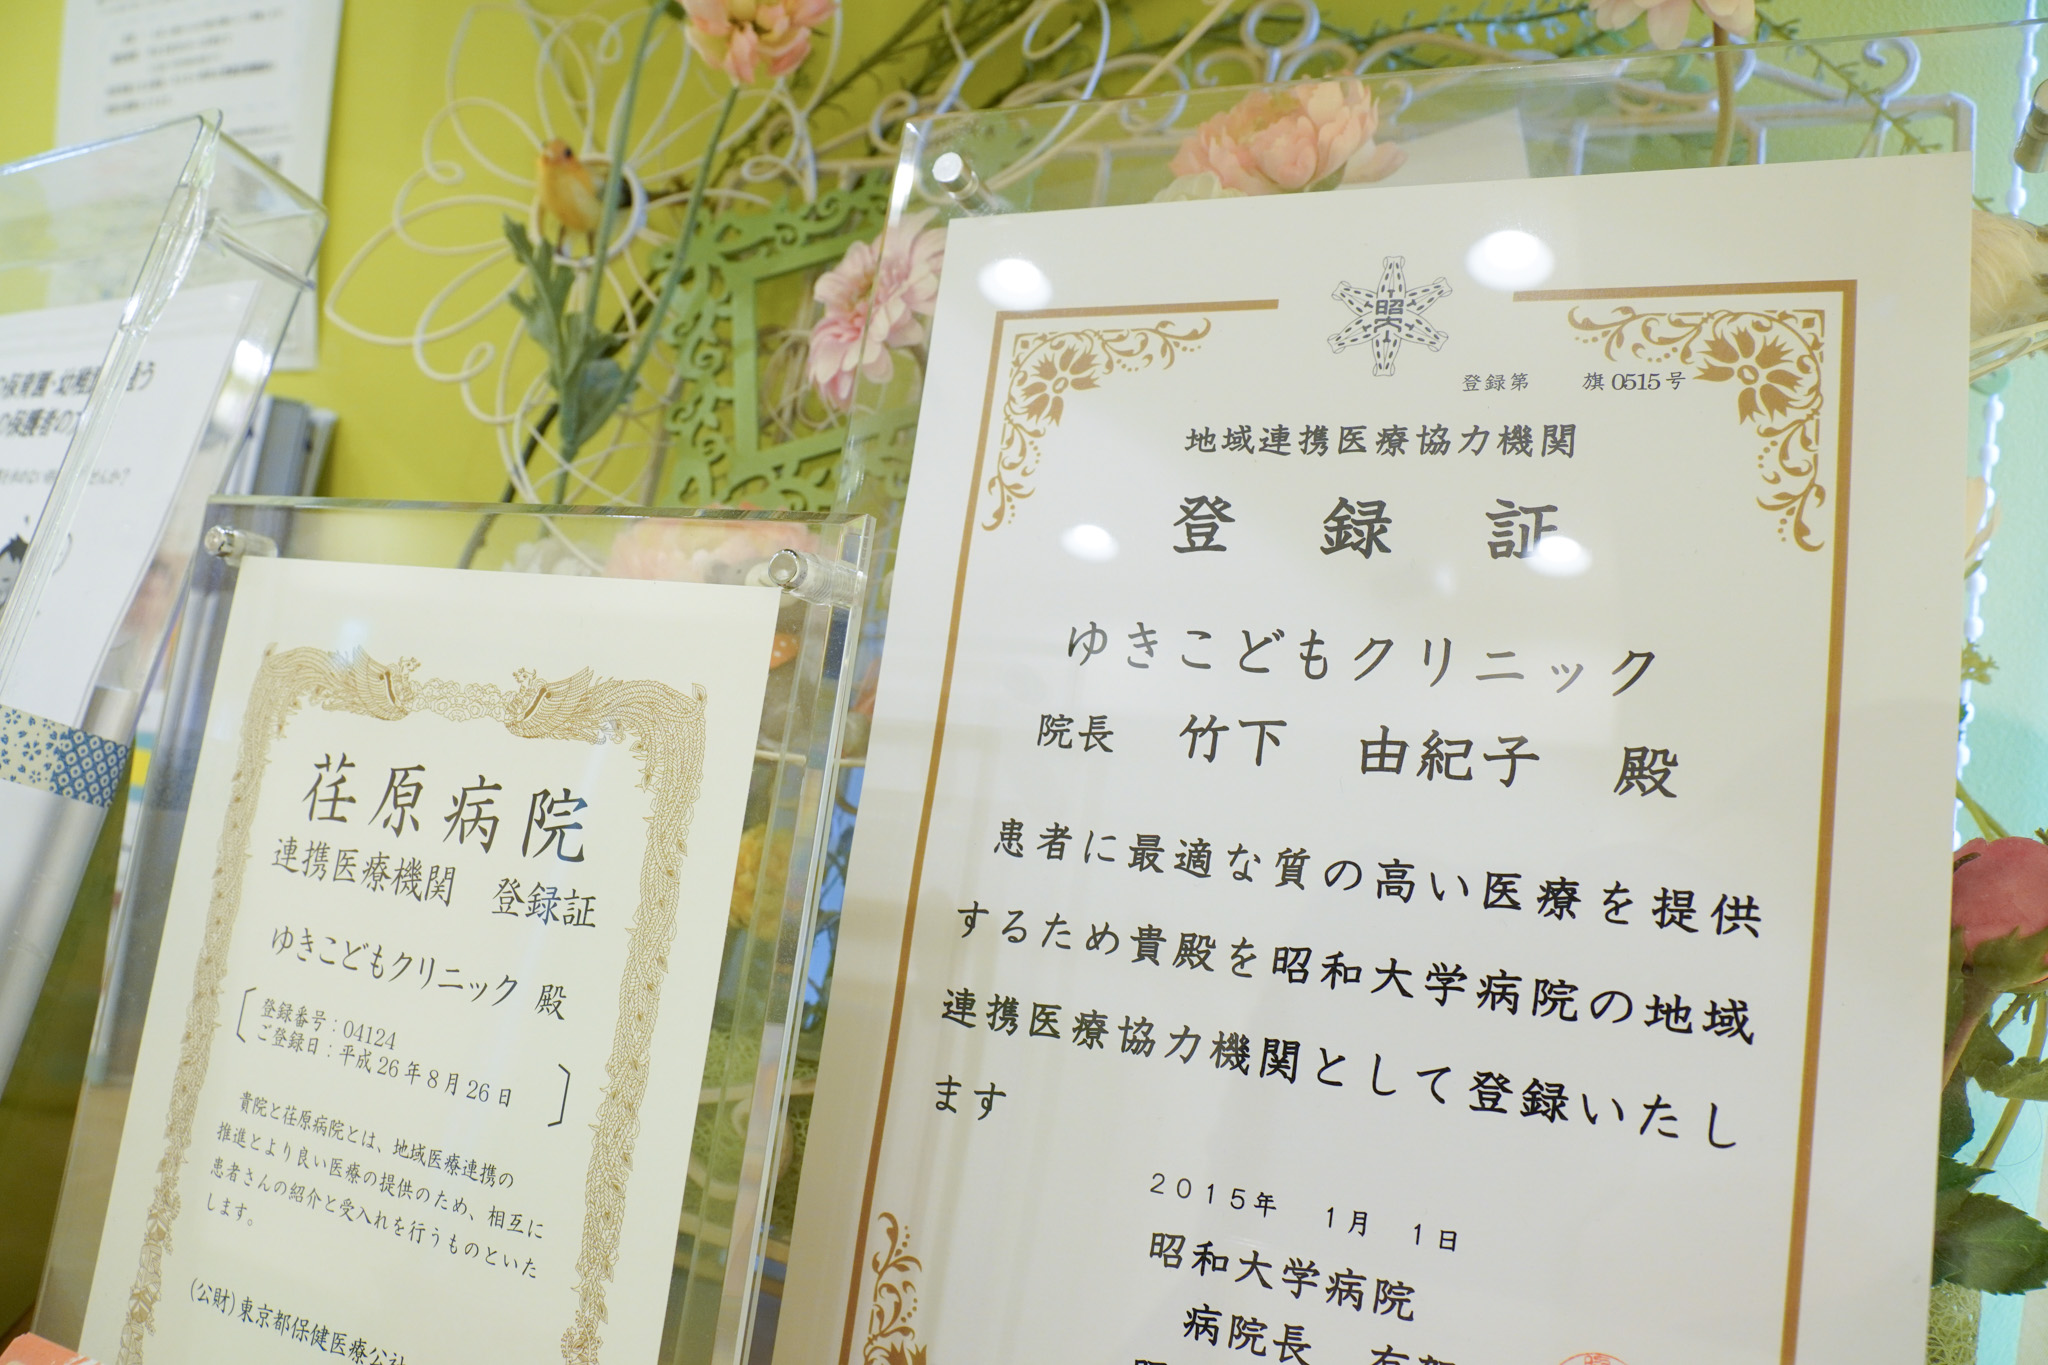 の保育園・幼稚
の保護者の
荏原病院
連携医療機関 登録証
ゆきこどもクリニック 殿
登録番号：04124
ご登録日：平成26年8月26日
貴院と荏原病院とは、地域医療連携の
推進とより良い医療の提供のため、相互に
患者さんの紹介と受入れを行うものといた
します。
(公財)東京都保健医療公社
昭大
登録第 旗0515号
地域連携医療協力機関
登録証
ゆきこどもクリニック
院長 竹下 由紀子 殿
患者に最適な質の高い医療を提供
するため貴殿を昭和大学病院の地域
連携医療協力機関として登録いたし
ます
2015年 1月 1日
昭和大学病院
病院長